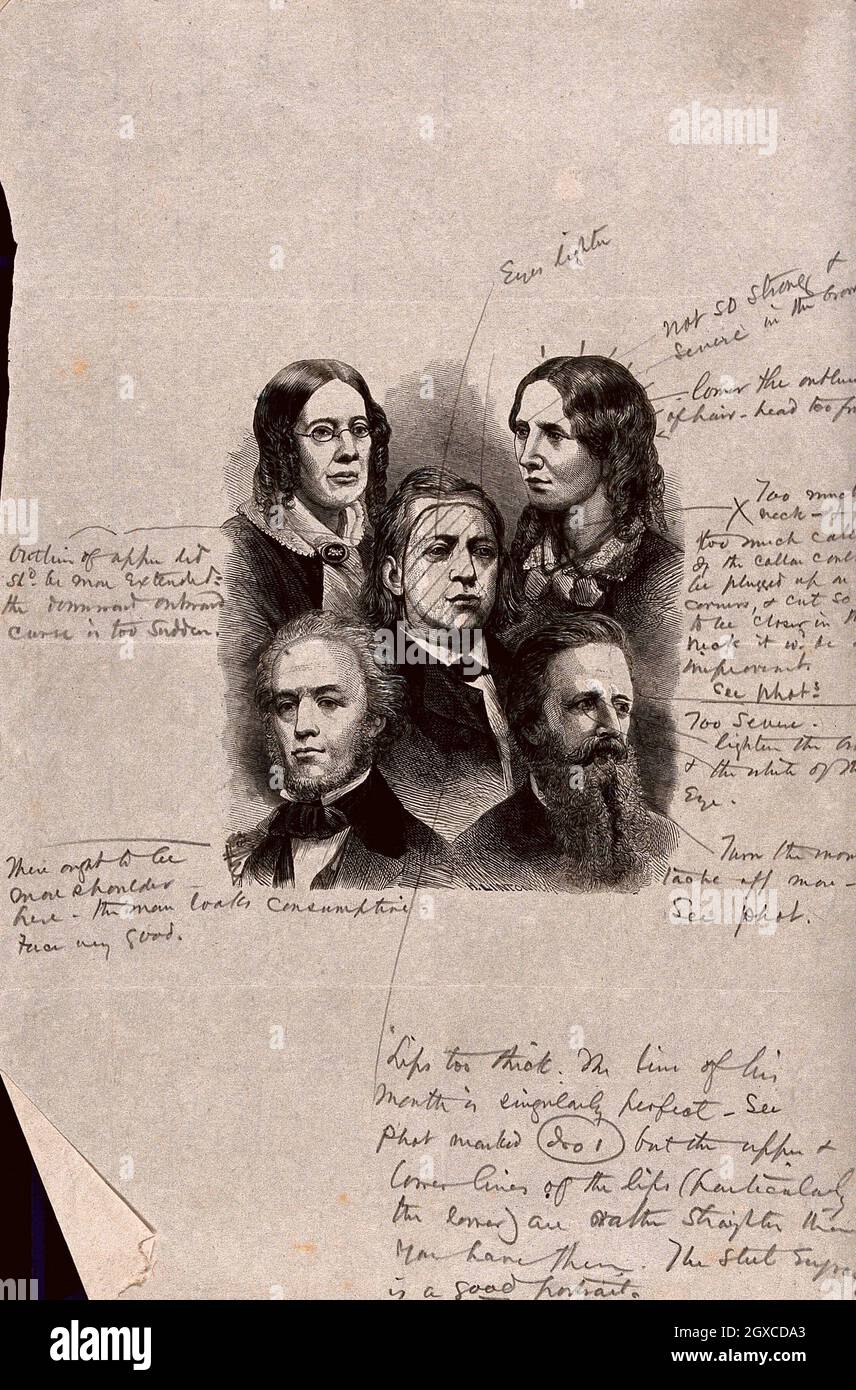 Eyes lighter
Not so strong &
severe in the brow
lower the outline
of hair - head too
Too much
neck -
too much
of the collar
be plugged up
corners, & cut so
to be closer in
neck it wd. be
improvement
See phots
Outline of upper lid
shd. be more extended -
the downward outward
curve is too sudden.
Too severe -
lighten the
& the white of the
Eye.
Turn the mous
tache off more -
See phot.
There ought to be
more shoulder
here - the man looks consumptive
Face very good.
Lips too thick. The line of his
mouth is singularly perfect - See
phot marked No 1 but the upper &
lower lines of the lips (particularly
the lower) are rather straighter than
you have them. The Steel
is a good portrait.
alamy
a
a
a
alamy
Image ID: 2GXCDA3
www.alamy.com